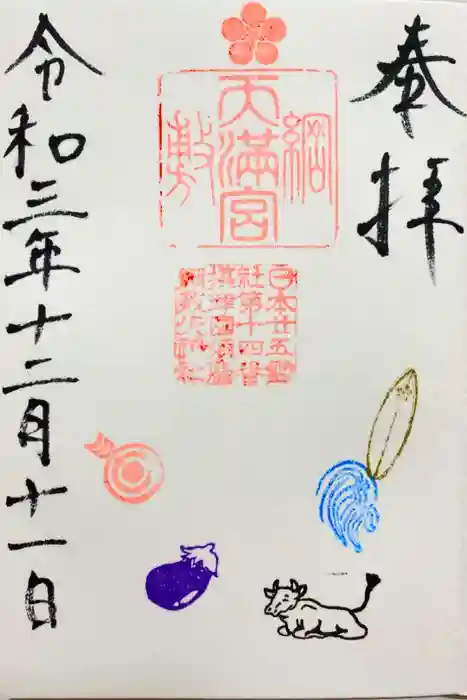 奉拝
綱敷天満宮
日本廿五霊
社第十四番
摂津国須磨
綱敷天神社
令和三年十二月十一日